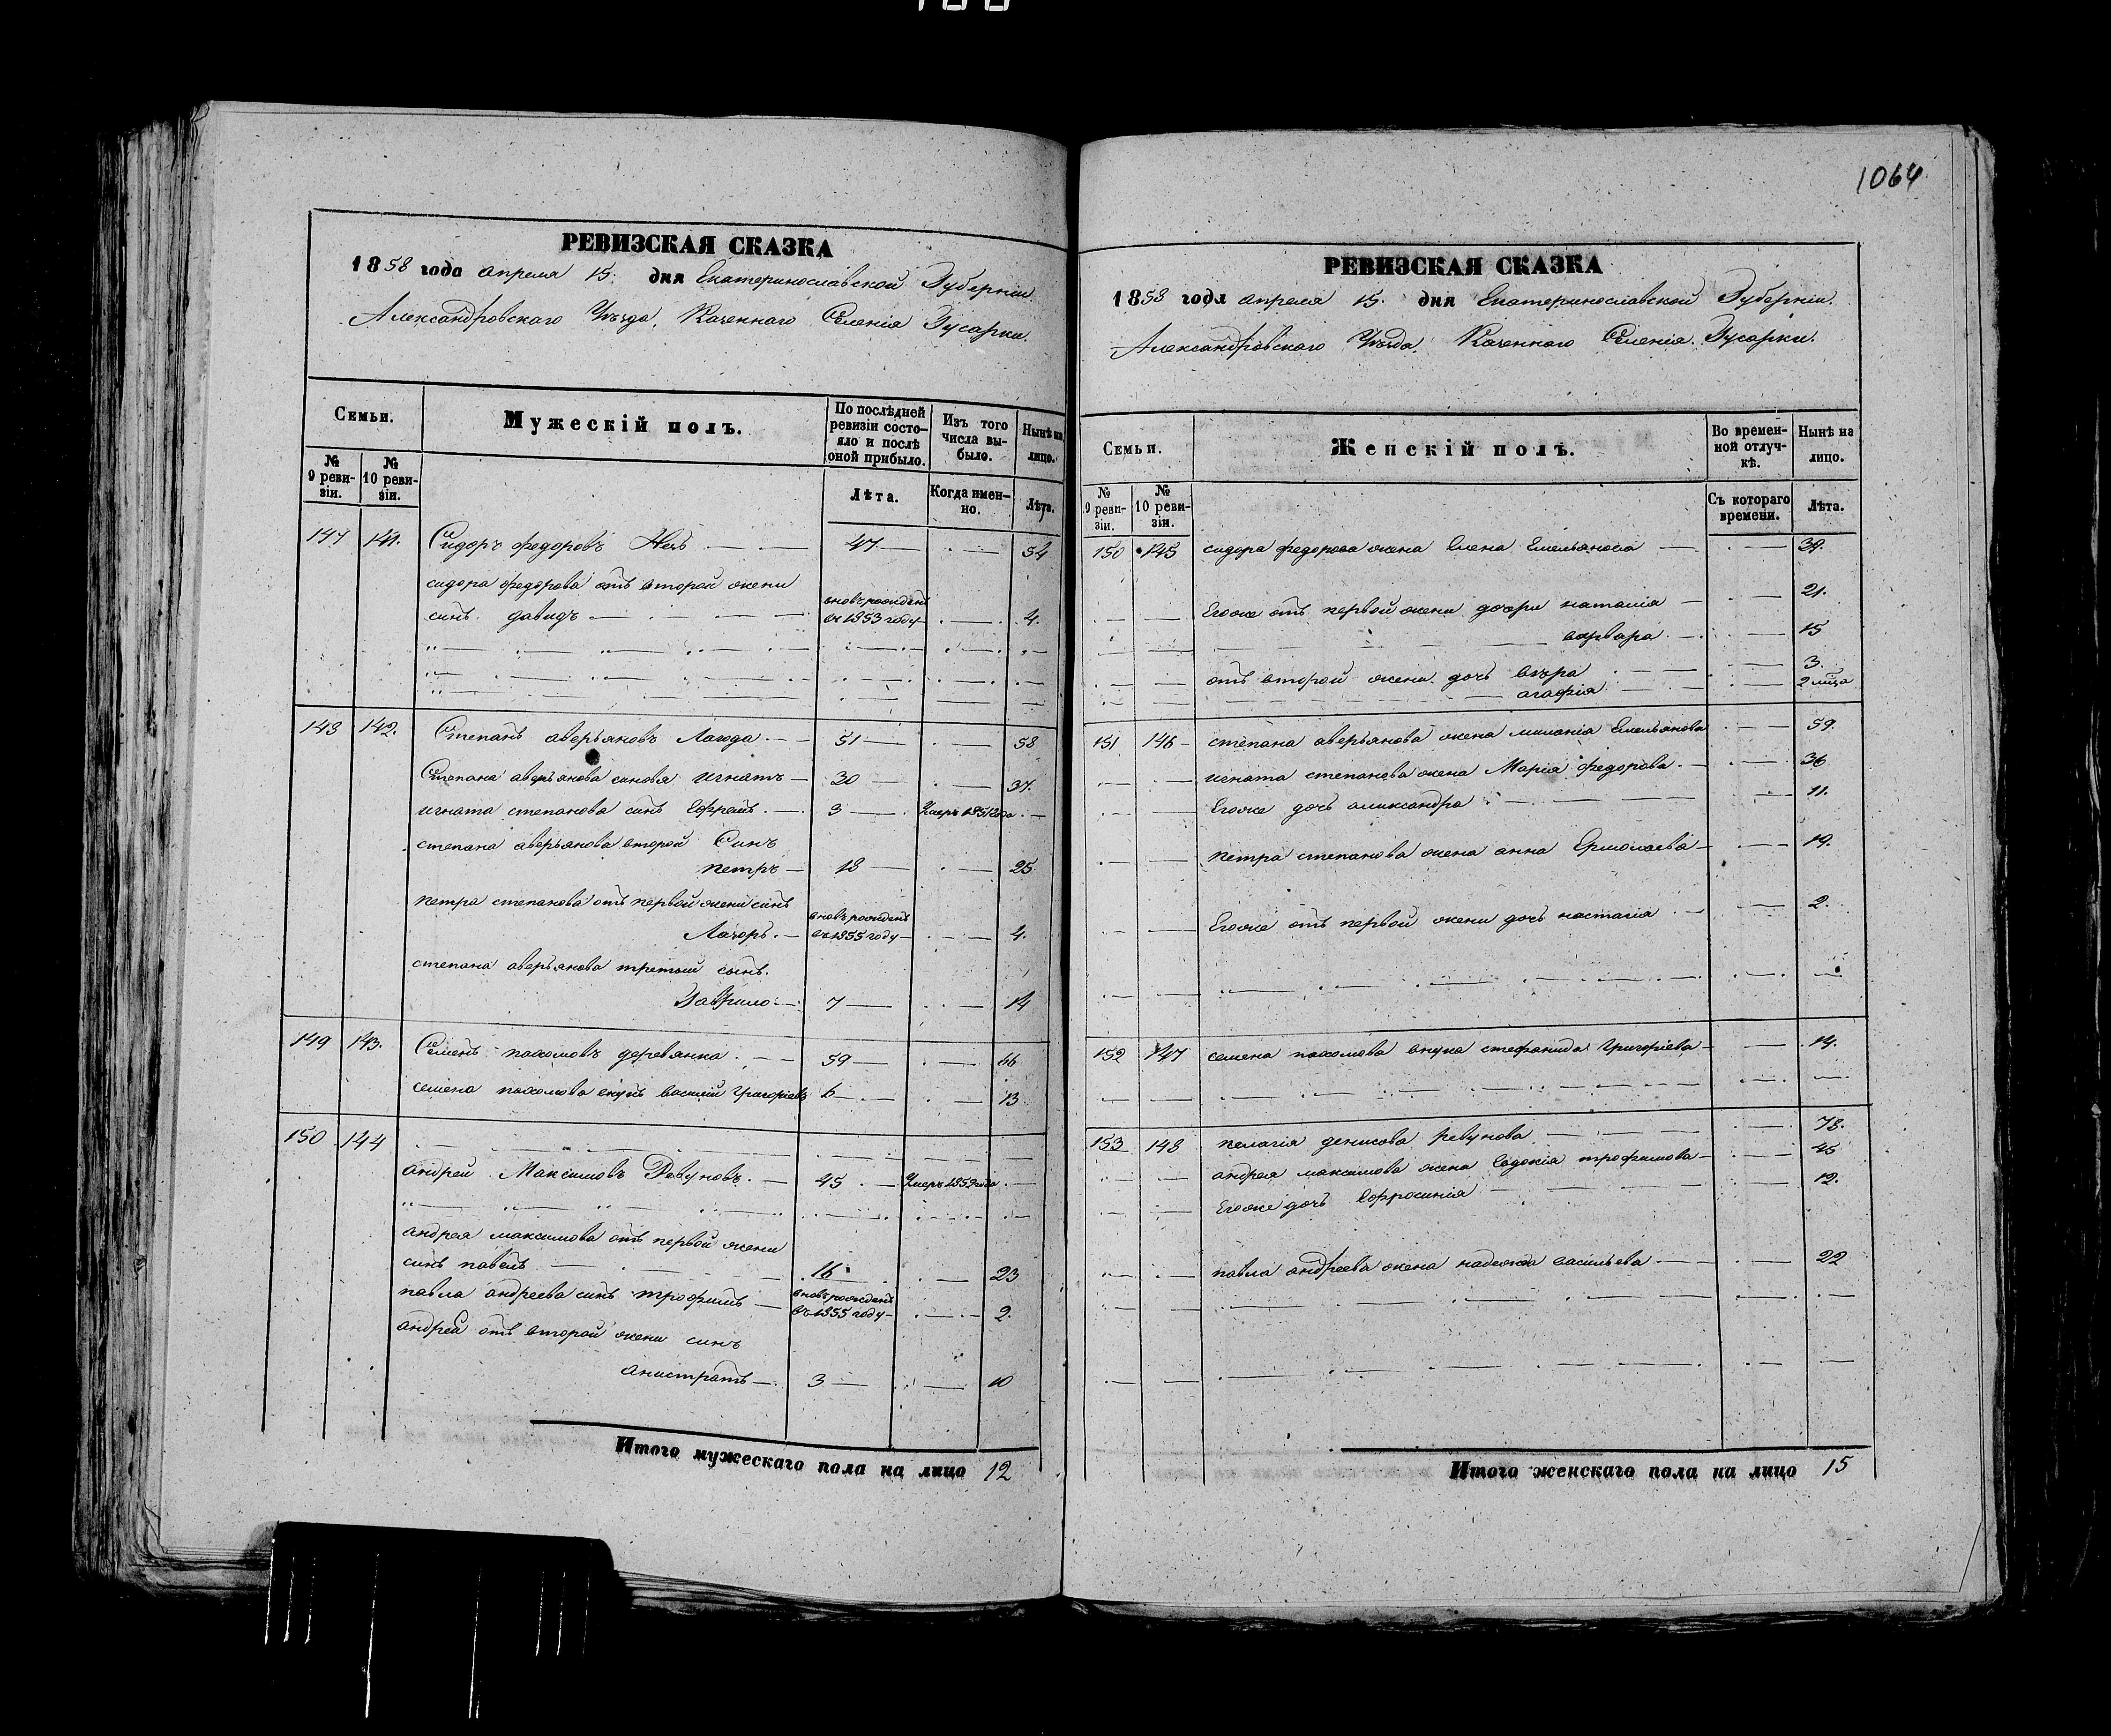 1064
РЕВИЗСКАЯ СКАЗКА
1858 года апреля 15. дня Екатеринославской Губерніи
Александровскаго Уѣзда, Казеннаго Селенія Гусарки.
Семьи.
Мужескій полъ.
По послѣдней ревизіи состояло и послѣ оной прибыло.
Изъ того числа выбыло.
Нынѣ на лицо.
№ 9 ревизіи.
№ 10 ревизіи.
Лѣта.
Когда именно.
Лѣта.
147 141. Сидоръ федоровъ 47 54
сидора федорова отъ второй жены
синъ давидъ вновь рожденъ въ 1853 году 4.
148 142. Степанъ аверьяновъ Лагода 51 58
Степана аверьянова синовя игнатъ 30 37.
игната степанова синъ Ефремъ 3 Умеръ 1851 года
степана аверьянова второй Синъ
петръ 18 25
петра степанова отъ первой жени синъ
Лазоръ. вновь рожденъ въ 1855 году 4.
степана аверьянова третьий сынъ.
Гаврило 7 14
149 143. Семенъ пахомовъ деревянка 59 66
семена пахомова внукъ василий Григориевъ 6 13
150 144
андрей Максимовъ Ревуновъ. 45 Умеръ 1859 года
андрея максимова отъ первой жени
синъ павелъ 16 23
павла андреева синъ трофимъ вновь рожденъ въ 1855 году 2.
андрей отъ второй жени синъ
анистратъ 3 10
Итого мужескаго пола на лицо 12
РЕВИЗСКАЯ СКАЗКА
1858 года апреля 15. дня Екатеринославской Губерніи.
Александровскаго Уѣзда, Казеннаго Селенія. Гусарки.
Семьи.
Женскій полъ.
Во временной отлучкѣ.
Нынѣ на лицо.
№ 9 ревизіи.
№ 10 ревизіи.
Съ котораго времени.
Лѣта.
150 145 сидора федорова жена Елена Емельянова 39.
Егоже отъ первой жени дочери наталія 21.
варвара 15
отъ второй жени дочъ вѣра 3.
агафія
151 146 степана аверьянова жена миланія Емельянова 59.
игната степанова жена Марія федорова 36
Егоже дочъ александра 11.
петра степанова жена анна Ермолаева 19.
Егоже отъ первой жени дочъ настасія 2.
152 147 семена пахомова внука стефанида Григоріева 14.
153 148 пелагія денисова Ревунова 78.
андрея максимова жена Евдокія трофимова 45
Егоже дочъ Ефросинія 12.
павла андреева жена надежда васильева 22
Итого женскаго пола на лицо 15